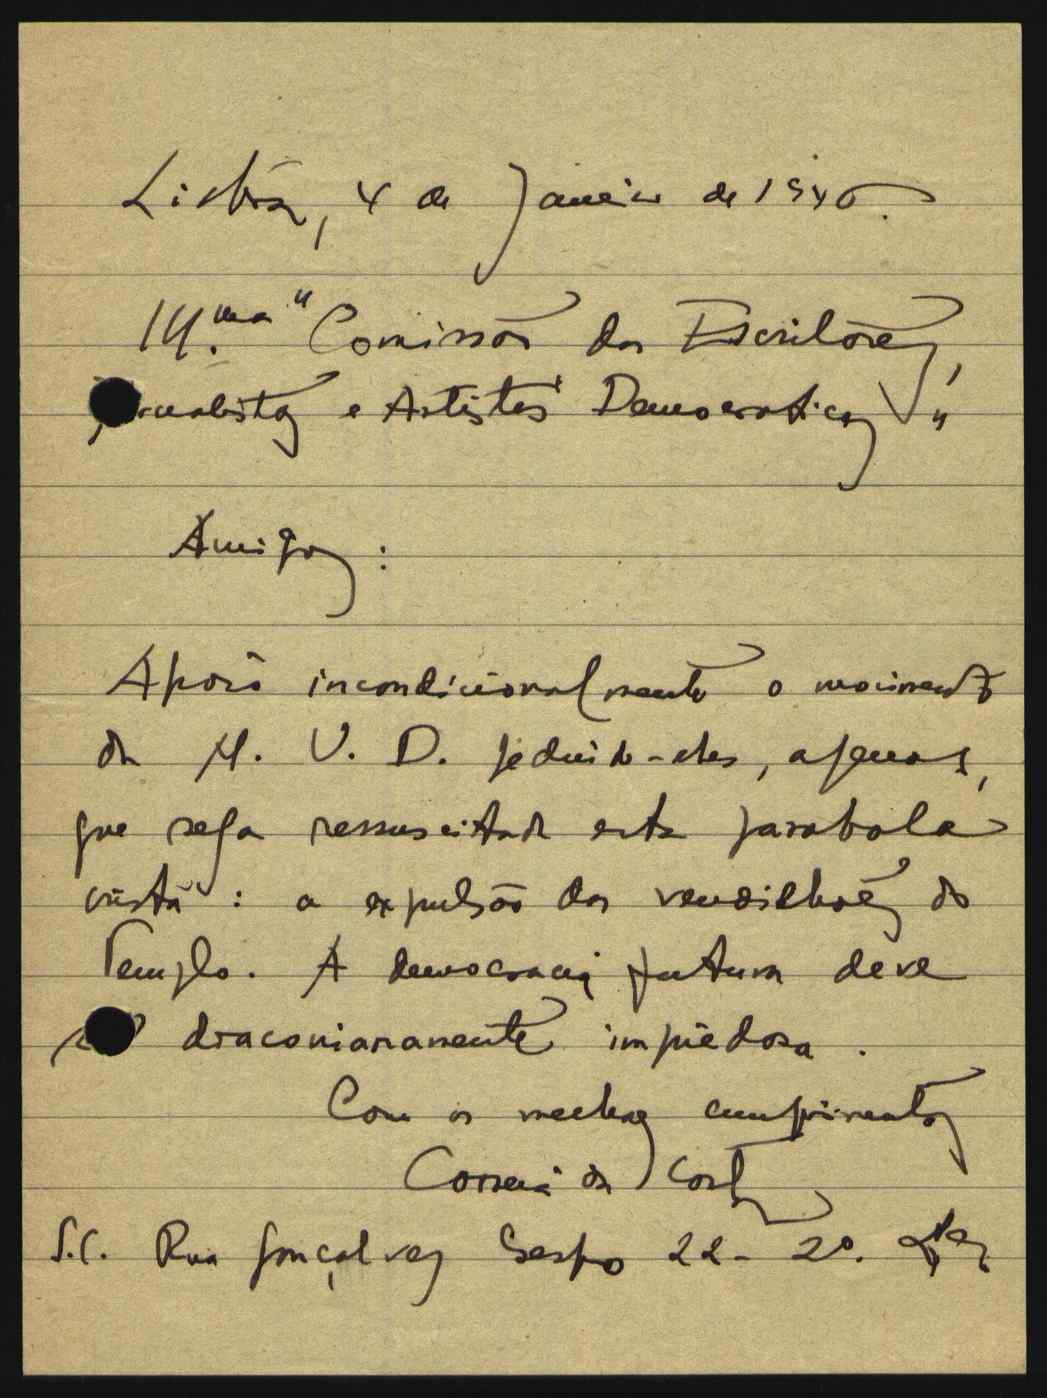 Lisboa, 4 de Janeiro de 1946.
Ill.ma "Comissão dos Escritores,
Jornalistas e Artistas Democraticos"
Amigos:
Apoio incondicionalmente o movimento
da M. U. D. pedindo-lhes, apenas,
que seja ressuscitada esta parabola
cristã: a expulsão dos vendilhões do
Templo. A democracia futura deve
ser draconianamente impiedosa.
Com os melhores cumprimentos
Correia da Costa
S.C. Rua Gonçalves Crespo 22- 2º.